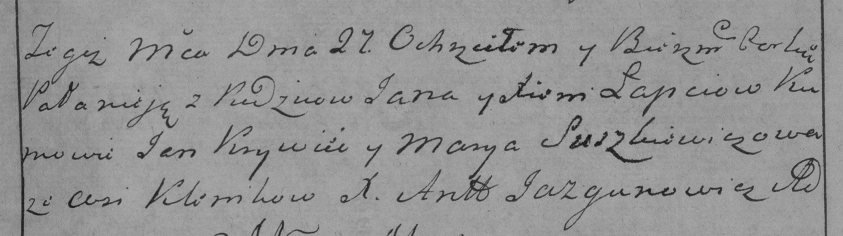 Tegoż Mca Dnia 27. Ochrzciłem y Bierzm
Pałanieję z Rodziców Jana y Łapciow Ku
mowie Jan Krywiec y Marya Suszkiewiczowa
ze wsi Klenikow X. Antt Jazgunowicz